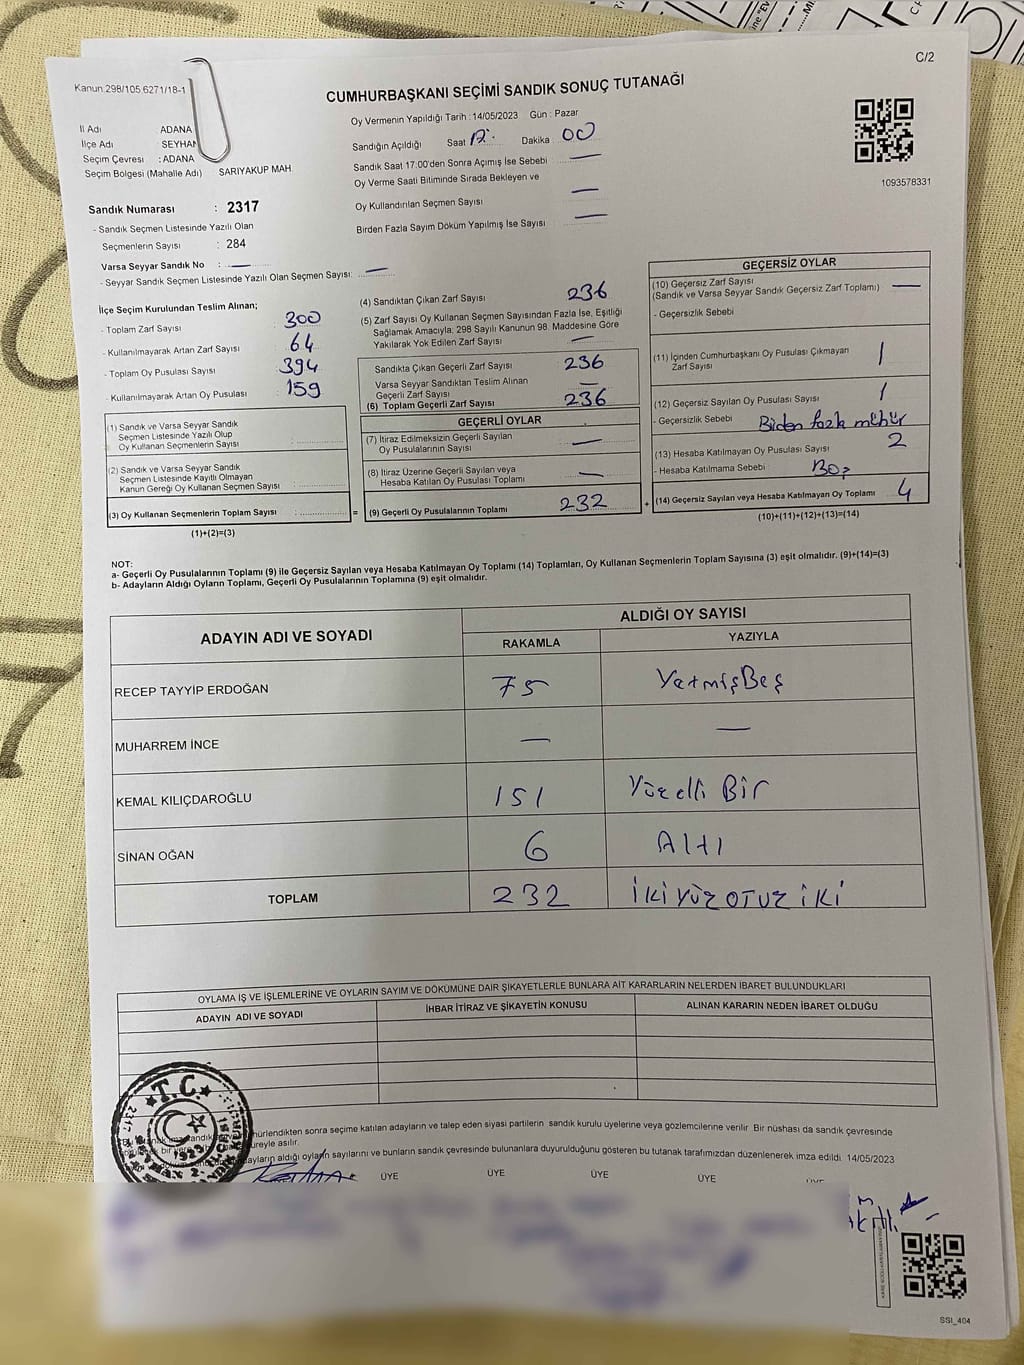 C/2
Kanun.298/105.6271/18-1
CUMHURBAŞKANI SEÇİMİ SANDIK SONUÇ TUTANAĞI
Oy Vermenin Yapıldığı Tarih : 14/05/2023 Gün : Pazar
İl Adı ADANA
İlçe Adı SEYHAN
Seçim Çevresi : ADANA
Seçim Bölgesi (Mahalle Adı) SARIYAKUP MAH.
Sandığın Açıldığı Saat 17: Dakika 00
Sandık Saat 17:00'den Sonra Açımış İse Sebebi —
Oy Verme Saati Bitiminde Sırada Bekleyen ve
Oy Kullandırılan Seçmen Sayısı —
Birden Fazla Sayım Döküm Yapılmış İse Sayısı —
1093578331
Sandık Numarası : 2317
- Sandık Seçmen Listesinde Yazılı Olan
Seçmenlerin Sayısı : 284
Varsa Seyyar Sandık No : —
- Seyyar Sandık Seçmen Listesinde Yazılı Olan Seçmen Sayısı: —
İlçe Seçim Kurulundan Teslim Alınan;
- Toplam Zarf Sayısı 300
- Kullanılmayarak Artan Zarf Sayısı 64
- Toplam Oy Pusulası Sayısı 394
- Kullanılmayarak Artan Oy Pusulası 159
(1) Sandık ve Varsa Seyyar Sandık
Seçmen Listesinde Yazılı Olup
Oy Kullanan Seçmenlerin Sayısı :
(2) Sandık ve Varsa Seyyar Sandık
Seçmen Listesinde Kayıtlı Olmayan
Kanun Gereği Oy Kullanan Seçmen Sayısı :
(3) Oy Kullanan Seçmenlerin Toplam Sayısı : =
(1)+(2)=(3)
(4) Sandıktan Çıkan Zarf Sayısı 236
(5) Zarf Sayısı Oy Kullanan Seçmen Sayısından Fazla İse, Eşitliği
Sağlamak Amacıyla; 298 Sayılı Kanunun 98. Maddesine Göre
Yakılarak Yok Edilen Zarf Sayısı —
Sandıkta Çıkan Geçerli Zarf Sayısı 236
Varsa Seyyar Sandıktan Teslim Alınan
Geçerli Zarf Sayısı —
(6) Toplam Geçerli Zarf Sayısı 236
GEÇERLİ OYLAR
(7) İtiraz Edilmeksizin Geçerli Sayılan
Oy Pusulasının Sayısı —
(8) İtiraz Üzerine Geçerli Sayılan veya
Hesaba Katılan Oy Pusulası Toplamı —
(9) Geçerli Oy Pusulalarının Toplamı 232 +
GEÇERSİZ OYLAR
(10) Geçersiz Zarf Sayısı
(Sandık ve Varsa Seyyar Sandık Geçersiz Zarf Toplamı) —
- Geçersizlik Sebebi
(11) İçinden Cumhurbaşkanı Oy Pusulası Çıkmayan
Zarf Sayısı 1
(12) Geçersiz Sayılan Oy Pusulası Sayısı 1
- Geçersizlik Sebebi Biden fazla mühür
(13) Hesaba Katılmayan Oy Pusulası Sayısı 2
- Hesaba Katılmama Sebebi Boş
(14) Geçersiz Sayılan veya Hesaba Katılmayan Oy Toplamı 4
(10)+(11)+(12)+(13)=(14)
NOT:
a- Geçerli Oy Pusulalarının Toplamı (9) ile Geçersiz Sayılan veya Hesaba Katılmayan Oy Toplamı (14) Toplamları, Oy Kullanan Seçmenlerin Toplam Sayısına (3) eşit olmalıdır. (9)+(14)=(3)
b- Adayların Aldığı Oyların Toplamı, Geçerli Oy Pusulalarının Toplamına (9) eşit olmalıdır.
ADAYIN ADI VE SOYADI ALDIĞI OY SAYISI
RAKAMLA YAZIYLA
RECEP TAYYİP ERDOĞAN 75 YetmişBeş
MUHARREM İNCE — —
KEMAL KILIÇDAROĞLU 151 Yüzelli Bir
SİNAN OĞAN 6 Altı
TOPLAM 232 İKİYÜZOTUZİKİ
OYLAMA İŞ VE İŞLEMLERİNE VE OYLARIN SAYIM VE DÖKÜMÜNE DAİR ŞİKAYETLERLE BUNLARA AİT KARARLARIN NELERDEN İBARET BULUNDUKLARI
ADAYIN ADI VE SOYADI İHBAR İTİRAZ VE ŞİKAYETİN KONUSU ALINAN KARARIN NEDEN İBARET OLDUĞU
T.C.
hürlendikten sonra seçime katılan adayların ve talep eden siyasi partilerin sandık kurulu üyelerine veya gözlemcilerine verilir. Bir nüshası da sandık çevresinde
süreyle asılır.
adayların aldığı oyların sayılarını ve bunların sandık çevresinde bulunanlara duyurulduğunu gösteren bu tutanak tarafımızdan düzenlenerek imza edildi. 14/05/2023
ÜYE ÜYE ÜYE ÜYE
SSI_404